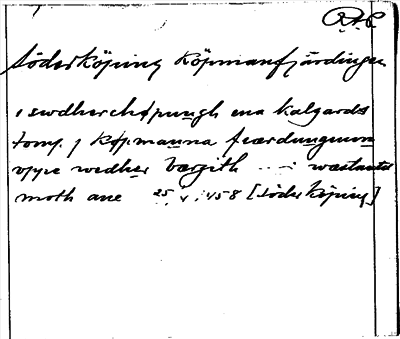 RAp
Söderköping Köpmanfjärdingen
i swdherchøpungh ena kalgards
tomp j Køpmanna fiærdungenom
vppe wedher Bergith ... wæstantil
moth ane 25/5 1458 [Söderköping]